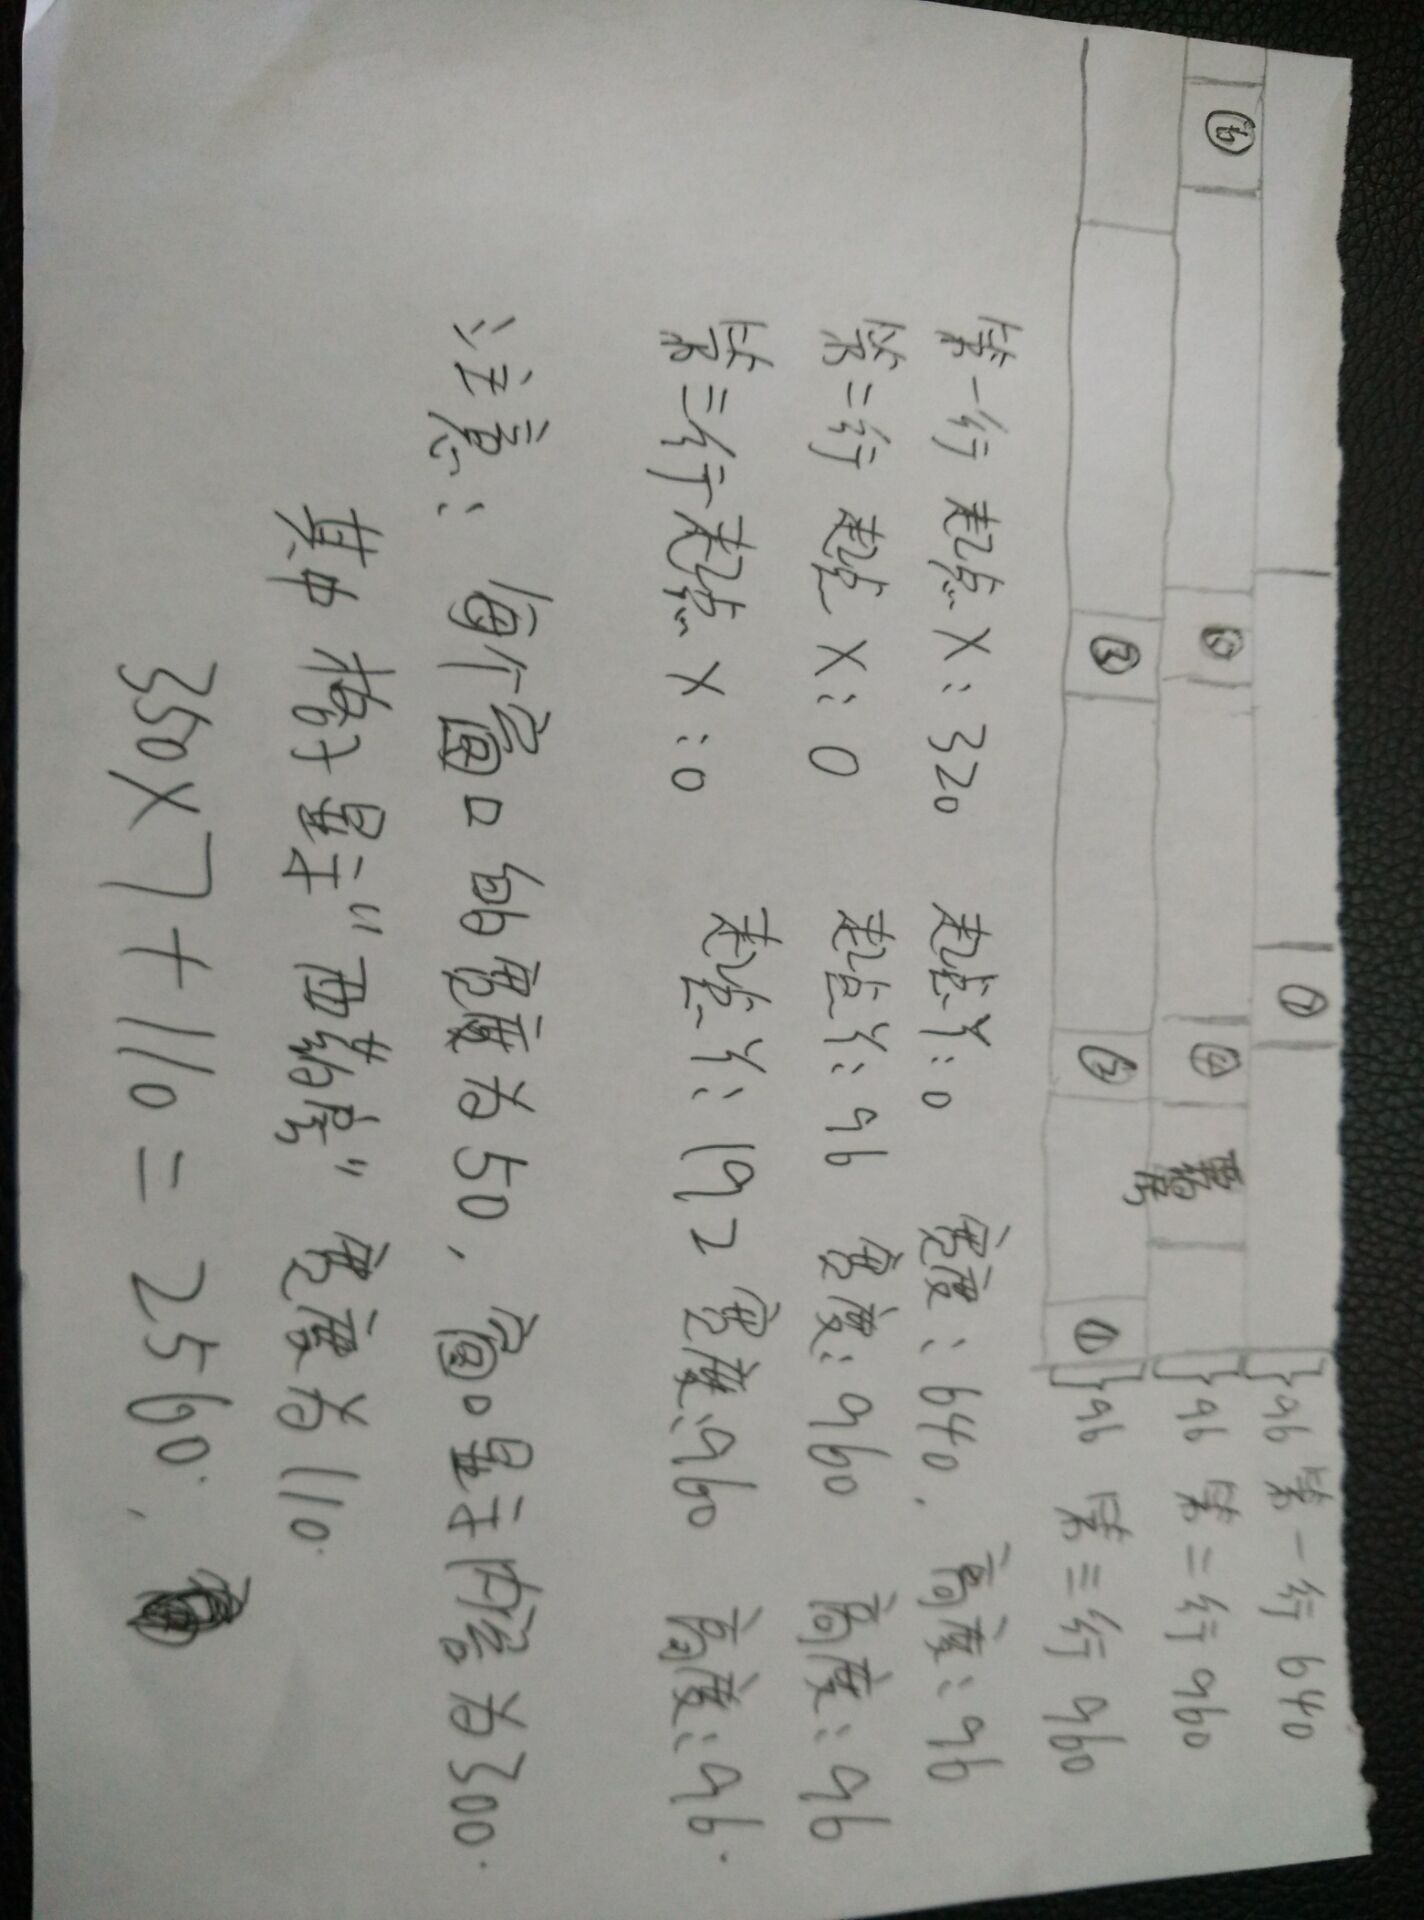 ⑦ }96 第一行 640
⑥ ⑤ ④ 西药房 }96 第二行 960
③ ② ① }96 第三行 960
第一行 起点X:320 起点Y:0 宽度:640. 高度:96
第二行 起点X:0 起点Y:96 宽度:960 高度:96
第三行起点X:0 起点Y:192 宽度:960 高度:96.
注意: 每个窗口的宽度为50, 窗口显示内容为300.
其中 显示“西药房” 宽度为110.
350X7+110=2560.